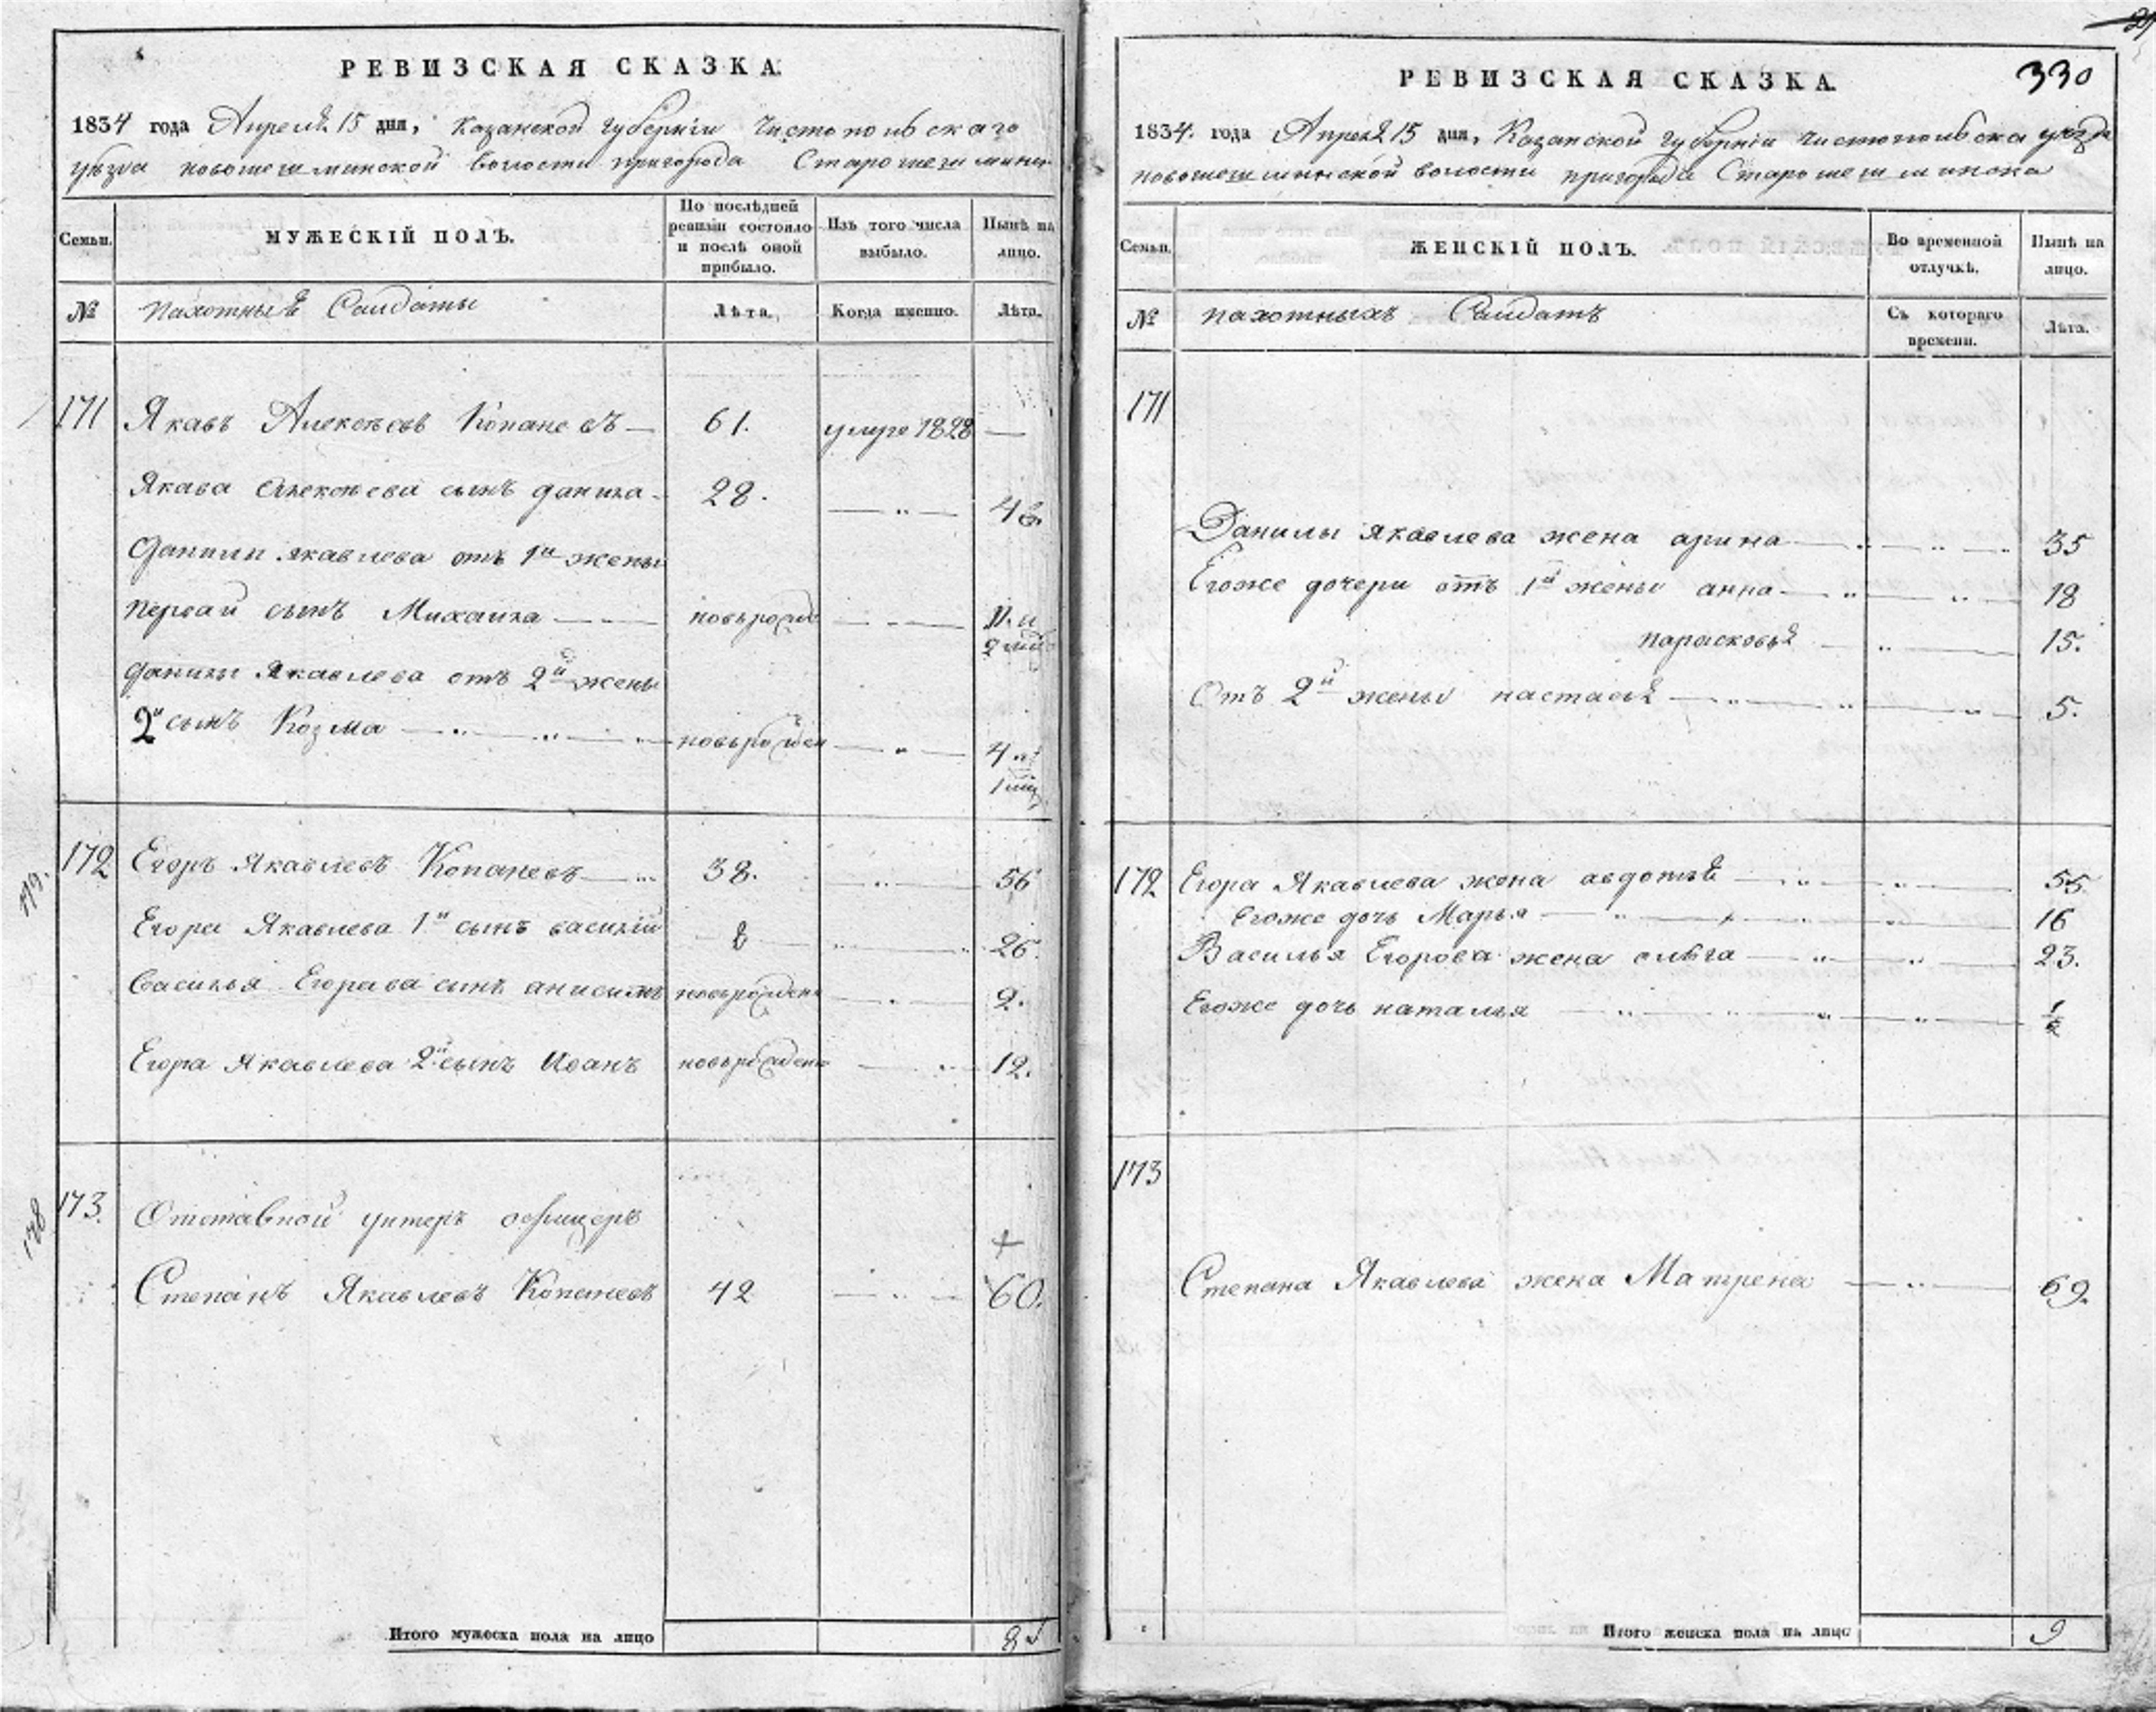 РЕВИЗСКАЯ СКАЗКА.
1834 года Апреля 15 дня, Казанской Губернiи Чистопольскаго
уѣзда новошешминской волости пригорода Старошешминс
Семьи.
МУЖЕСКIЙ ПОЛЪ.
По послѣдней ревизiи состояло и послѣ оной прибыло.
Изъ того числа выбыло.
Нынѣ на лицо.
№
пахотныѣ Салдаты
Лѣта.
Когда именно.
Лѣта.
171 Якавъ Алексѣевъ Копаневъ 61. умре 1828
Якава Алексѣева сынъ данила 28. 46.
Данилы якавлева отъ 1й жены
первай сынъ Михаила новорожде 11. и
9 мѣ
данилы Якавлева отъ 2й жены
2й сынъ Козма новорожден 4 и
1 мѣ
172 Егоръ Якавлевъ Копаневъ 38. 56
179.
Егора Якавлева 1й сынъ василiй 8 26.
Василья Егорава сынъ анисимъ новорожденъ 2.
Егора Якавлева 2й сынъ Иванъ новорожденъ 12.
173. Отставной унтеръ офицеръ
178
Степанъ Якавлевъ Копаневъ 42 60.
Итого мужеска пола на лицо 8
330
РЕВИЗСКАЯ СКАЗКА.
1834. года Апреля 15 дня, Казанской Губернiи Чистопольска уѣзда
новошешминской волости пригорода Старошешминска
Семьи.
ЖЕНСКIЙ ПОЛЪ.
Во временной отлучкѣ.
Нынѣ на лицо.
№
пахотныхъ Салдатъ
Съ котораго времени.
Лѣта.
171
Данилы якавлева жена арина 35
Егоже дочери отъ 1й жены анна 18
парасковья 15.
Отъ 2й жены настасья 5.
172 Егора Якавлева жена авдотья 55
Егоже дочь Марья 16
Василья Егорова жена ольга 23.
Егоже дочь наталья 1/2
173
Степана Якавлева жена Матрена 69.
Итого женска пола на лицо 9